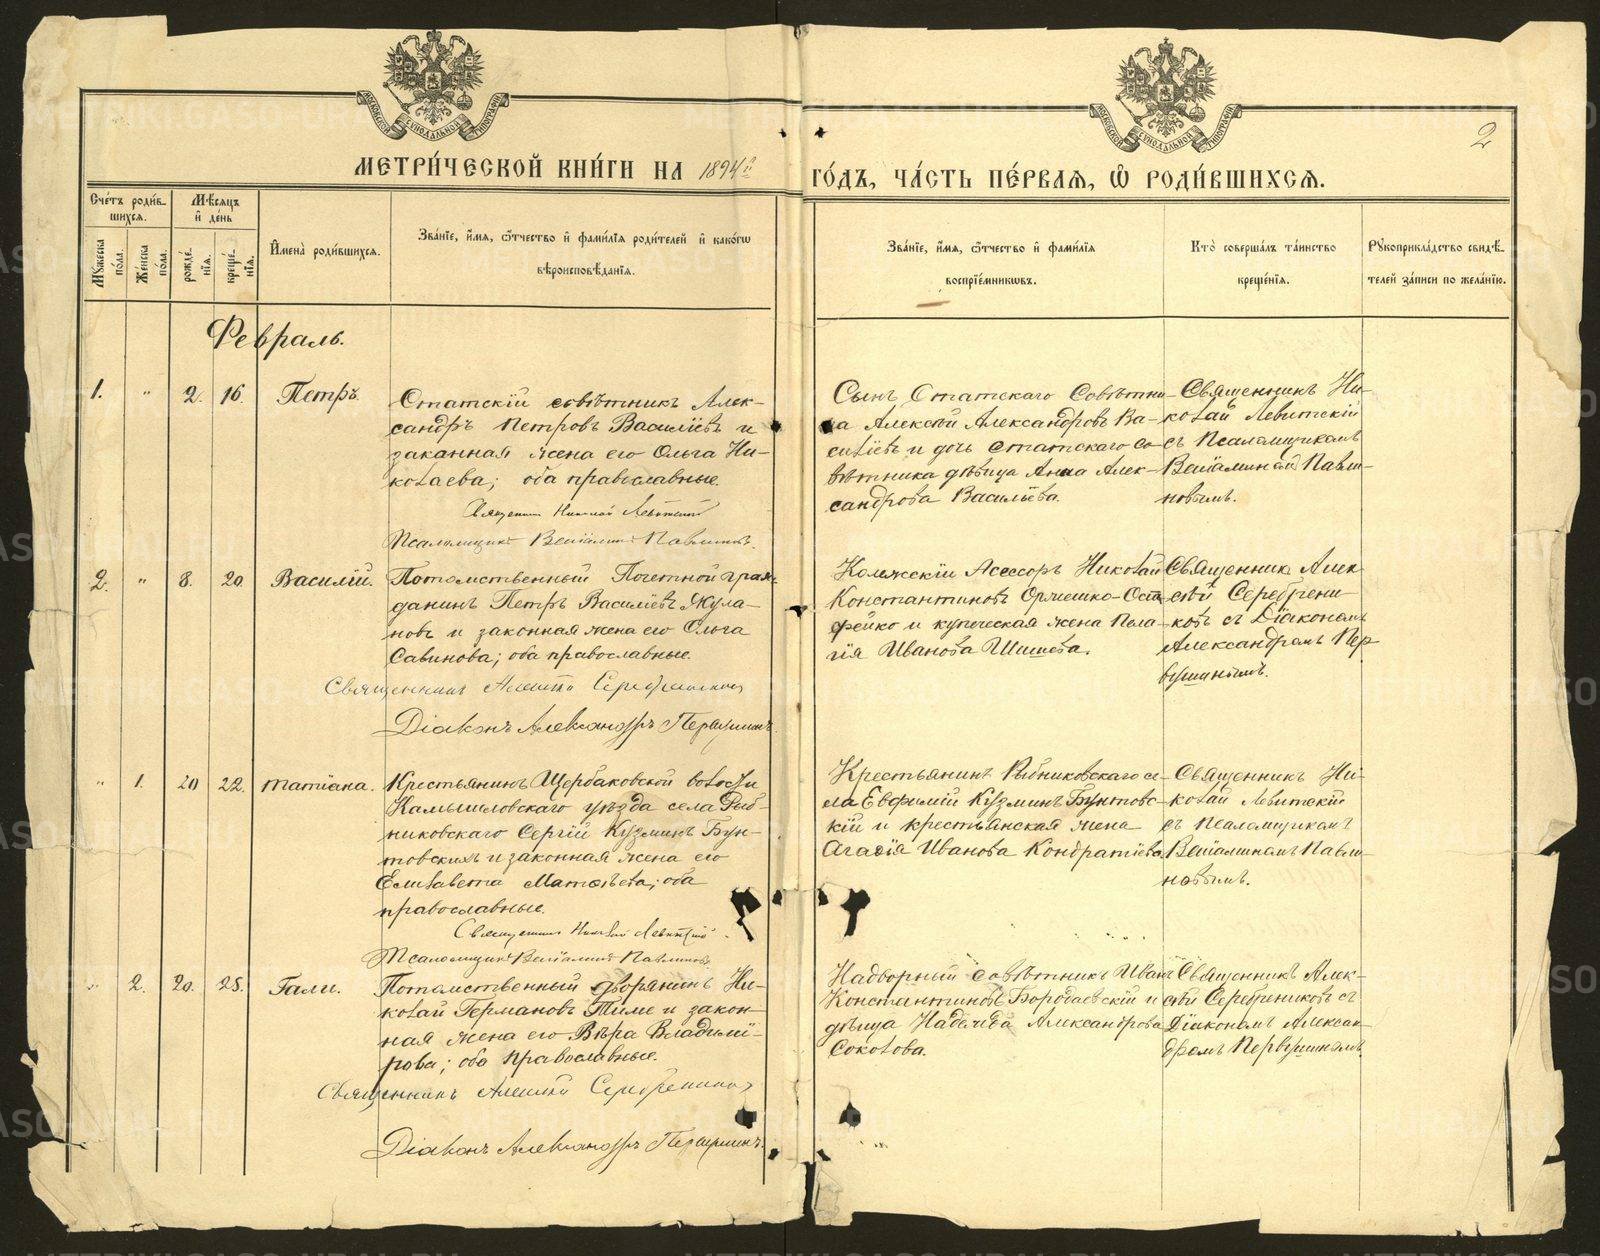 МОСКОВСКОЙ СѴНОДАЛЬНОЙ ТИПОГРАФІИ
МОСКОВСКОЙ СѴНОДАЛЬНОЙ ТИПОГРАФІИ
2
МЕТРИ́ЧЕСКОЙ КНИ́ГИ НА 1894й
ГО́ДЪ, ЧА́СТЬ ПЕ́РВАЯ, Ѡ РОДИ́ВШИХСЯ.
Сче́тъ роди́в-
шихся.
Мѣ́сяцъ
и де́нь
Му́жеска по́ла.
Же́нска по́ла.
рожде́-нія.
креще́-нія.
Имена̀ роди́вшихся.
Зва́ніе, и́мя, ѻ́тчество и фами́лія роди́телей и како́гѡ
вѣроисповѣ́данія.
Зва́ніе, и́мя, ѻ́тчество и фами́лія
воспріе́мникѡвъ.
Кто̀ соверша́лъ та́инство
креще́нія.
Рꙋкоприкла́дство свидѣ́-
телей за́писи по жела́нію.
Февраль.
1. " 2. 16. Петръ.
Статскій совѣтникъ Алек-
сандръ Петровъ Василіевъ и
законная жена его Ольга Ни-
колаева; оба православные.
Священникъ Николай Левитскій
Псаломщикъ Веніаминъ Павлиновъ.
Сынъ Статскаго Совѣтни-
ка Алексѣй Александровъ Ва-
силіевъ и дочь статскаго со-
вѣтника дѣвица Анна Алек-
сандрова Васильева.
Священникъ Ни-
колай Левитскій
съ Псаломщикомъ
Веніаминомъ Павли-
новымъ.
2. " 8. 20. Василій.
Потомственный Почетной граж-
данинъ Петръ Василіевъ
новъ и законная жена его Ольга
Савинова; оба православные.
Священникъ Алексѣй Серебренниковъ
Діаконъ Александръ Первушинъ.
Колежскій Ассесоръ Николай
Константиновъ Ормешко-Оста-
фейко и купеческая жена Пела-
гія Иванова
Священникъ Алек
сѣй Серебрени
ковъ съ Діакономъ
Александромъ Пер
вушинымъ.
" 1. 20 22. Татіана.
Крестьянинъ Щербаковской волости
Камышловскаго уѣзда села Рыб-
никовскаго Сергій Кузминъ Бун-
товскихъ и законная жена его
Елисавета Матѳѣева; оба
православные.
Священникъ Николай Левитскій
Псаломщикъ Веніаминъ Павлиновъ.
Крестьянинъ Рыбниковскаго се-
ла Евфимій Кузминъ Бунтовс-
кій и крестьянская жена
Агаѳія Иванова Кондратіева.
Священникъ Ни-
колай Левитскій
съ Псаломщикомъ
Веніаминомъ Павли-
новымъ.
" 2. 20. 25. Гали.
Потомственный дворянинъ Ни-
колай Германовъ Тиме и закон-
ная жена его Вѣра Владимі-
рова; оба православные.
Священникъ Алексѣй Серебренниковъ
Діаконъ Александръ Первушинъ.
Надворный совѣтникъ Иванъ
Константиновъ Бородаевскій и
дѣвица Надежда Александрова
Соколова.
Священникъ Алек-
сѣй Серебрениковъ съ
Діакономъ Алексан-
дромъ Первушинымъ.